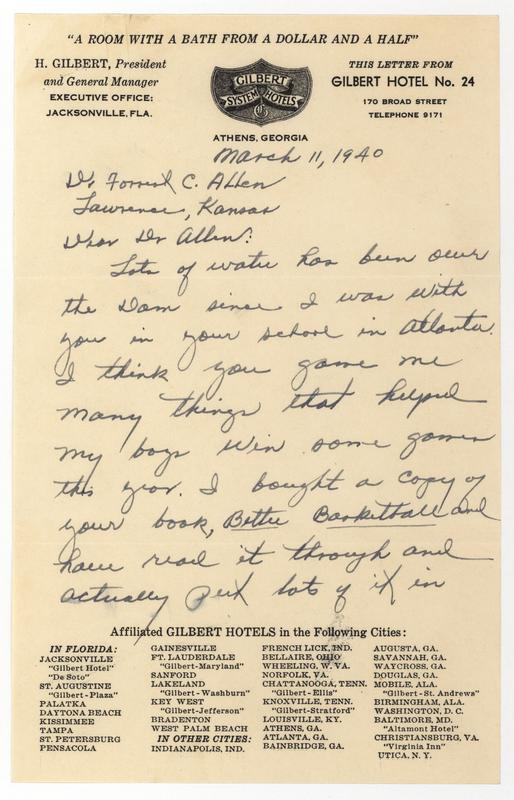 "A ROOM WITH A BATH FROM A DOLLAR AND A HALF"
H. GILBERT, President
and General Manager
EXECUTIVE OFFICE:
JACKSONVILLE, FLA.
GILBERT
SYSTEM HOTELS
G
ATHENS, GEORGIA
THIS LETTER FROM
GILBERT HOTEL No. 24
170 BROAD STREET
TELEPHONE 9171
March 11, 1940
Dr Forrest C. Allen
Lawrence, Kansas
Dear Dr Allen:
Lots of water has been over
the Dam since I was with
you in your school in Atlanta.
I think you game me
many things that helped
my boys win some games
this year. I bought a copy of
your book, Better Basketball and
have read it through and
actually put lots of it in
Affiliated GILBERT HOTELS in the Following Cities:
IN FLORIDA:
JACKSONVILLE
"Gilbert Hotel"
"De Soto"
ST. AUGUSTINE
"Gilbert-Plaza"
PALATKA
DAYTONA BEACH
KISSIMMEE
TAMPA
ST. PETERSBURG
PENSACOLA
GAINESVILLE
FT. LAUDERDALE
"Gilbert-Maryland"
SANFORD
LAKELAND
"Gilbert-Washburn"
KEY WEST
"Gilbert-Jefferson"
BRADENTON
WEST PALM BEACH
IN OTHER CITIES:
INDIANAPOLIS, IND.
FRENCH LICK, IND.
BELLAIRE, OHIO
WHEELING, W. VA.
NORFOLK, VA.
CHATTANOOGA, TENN.
"Gilbert-Ellis"
KNOXVILLE, TENN.
"Gilbert-Stratford"
LOUISVILLE, KY.
ATHENS, GA.
ATLANTA, GA.
BAINBRIDGE, GA.
AUGUSTA, GA.
SAVANNAH, GA.
WAYCROSS, GA.
DOUGLAS, GA.
MOBILE, ALA.
"Gilbert-St. Andrews"
BIRMINGHAM, ALA.
WASHINGTON, D. C.
BALTIMORE, MD.
"Altamont Hotel"
CHRISTIANSBURG, VA.
"Virginia Inn"
UTICA, N. Y.